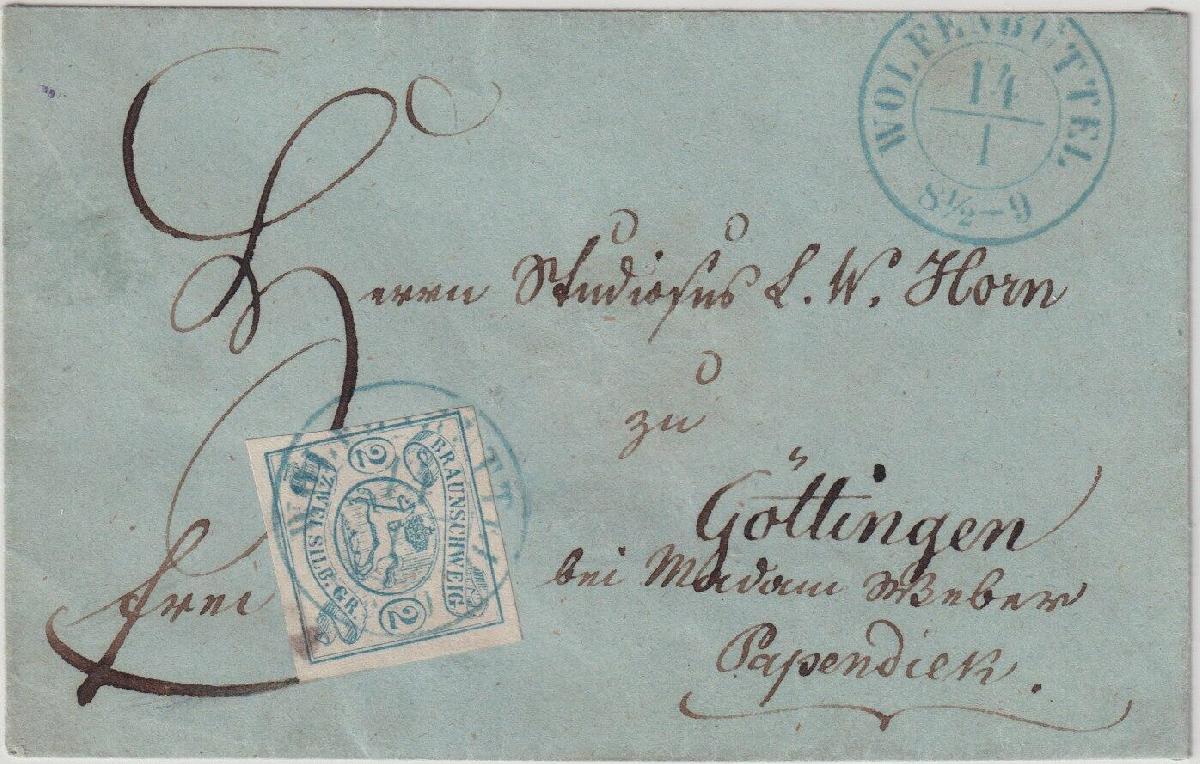 WOLFENBÜTTEL
14
1
8½-9
Herrn Studiosus L. W. Horn
zu
Göttingen
bei Madam Weber
Papendiek.
frei
BRAUNSCHWEIG
2
2
ZWEI SILB. GR.